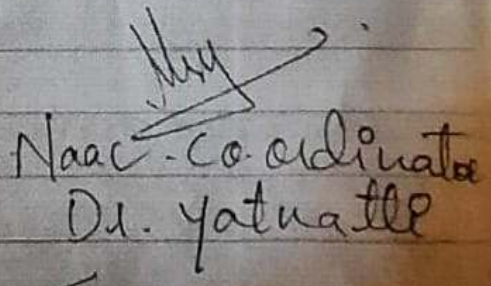 Naac-Co.ordinator
Dr. Yatnatti